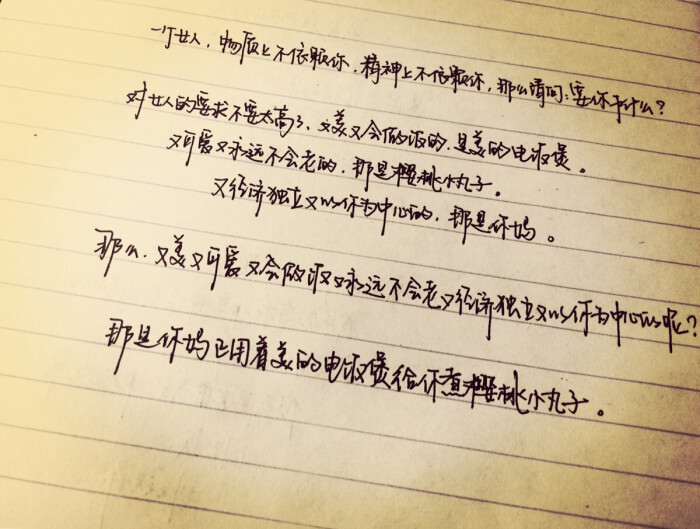 一个女人，物质上不依赖你，精神上不依赖你，那么请问：要你干什么？
对女人的要求不要太高了，又美又会做饭的，是美的电饭煲。
又可爱又永远不会老的，那是樱桃小丸子。
又经济独立又以你为中心的，那是你妈。
那么，又美又可爱又会做饭又永远不会老又经济独立又以你为中心的呢？
那是你妈正用着美的电饭煲给你煮樱桃小丸子。